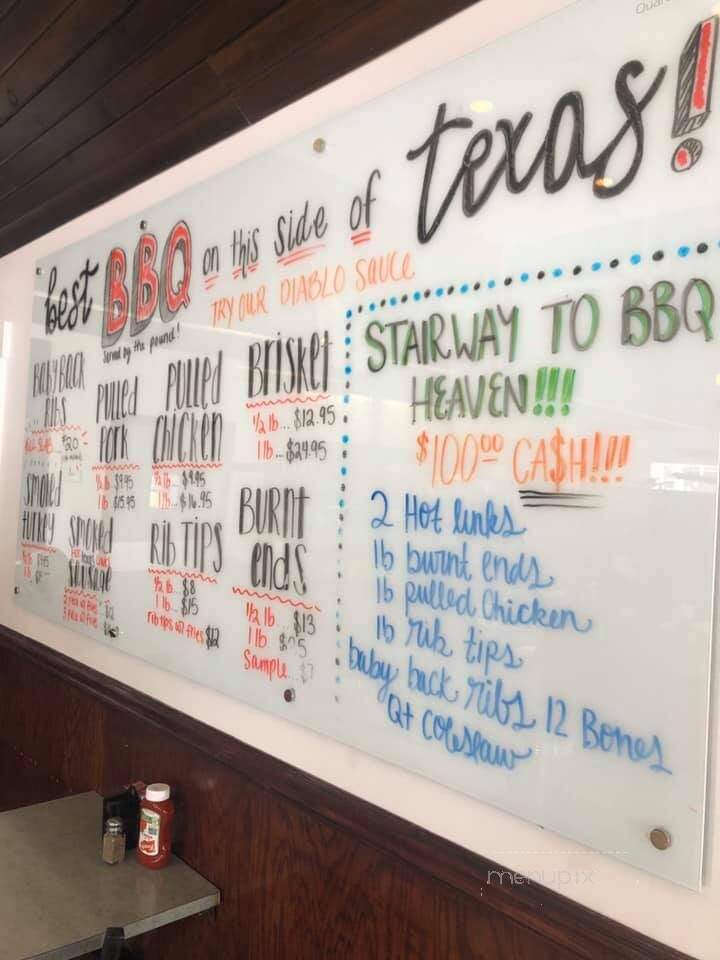 best BBQ on this side of texas!
TRY OUR DIABLO SAUCE
served by the pound!
BABY BACK
RIBS
$20
PULLED
PORK
1 lb $15.95
PULLED
CHICKEN
1/2 lb... $9.95
1 lb... $16.95
BRiSket
1/2 lb... $12.95
1 lb... $24.95
Smoked
turkey
Smoked
Sausage
RIB TIPS
1/2 lb... $8
1 lb... $15
rib tips w/ fries $12
BURNt
ends
1/2 lb. $13
1 lb.
Sample... $7
STAIRWAY TO BBQ
HEAVEN!!!
$100.00 CA$H!!!
2 Hot links
1b burnt ends
1b pulled Chicken
1b rib tips
baby back ribs 12 Bones
Qt Coleslaw
menupix